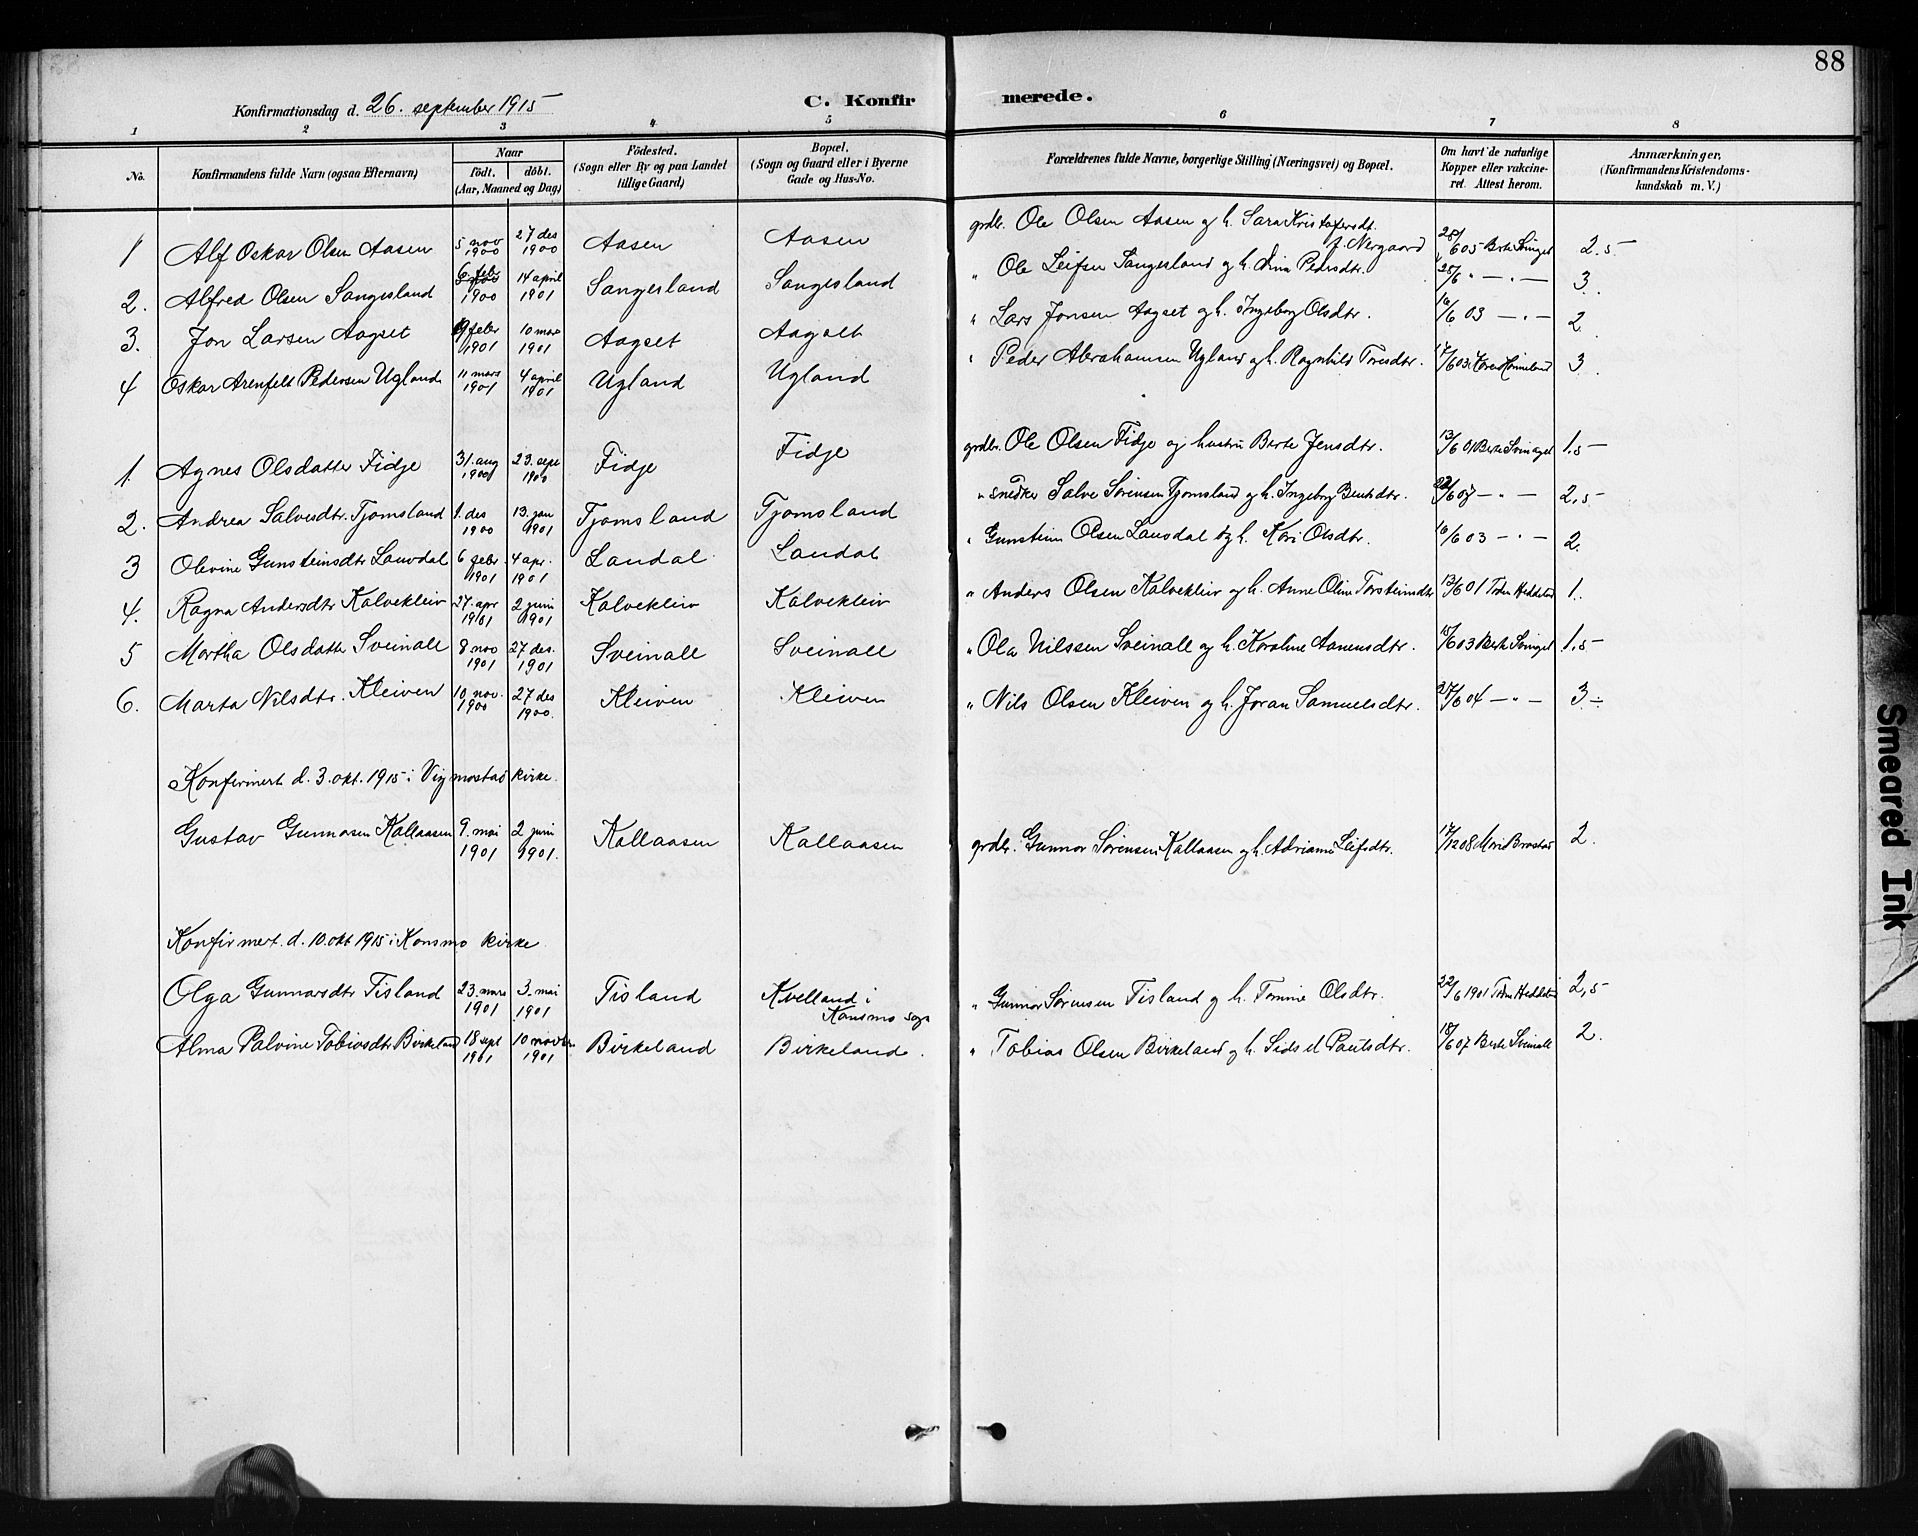 88
Konfirmationsdag d. 26. september 1915
C. Konfirmerede.
1 2 3 4 5 6 7 8
No. Konfirmandens fulde Navn (ogsaa Efternavn) Naar født. døbt. (Aar, Maaned og Dag) Fødested. (Sogn eller By og paa Landet tillige Gaard) Bopæl. (Sogn og Gaard eller i Byerne Gade og Hus-No. Forældrenes fulde Navne, borgerlige Stilling (Næringsvei) og Bopæl. Om havt de naturlige Kopper eller vakcineret. Attest herom. Anmærkninger, (Konfirmandens Kristendomskundskab m. V.)
1 Alf Oskar Olsen Aasen 5 nov 1900 27 des 1900 Aasen Aasen grdbr. Ole Olsen Aasen og h. Sara Kristofersdt. f. Nergaard 605 Berte 2.5
2. Alfred Olsen Sangesland 6 febr 1900 14 april 1901 Sangesland Sangesland " Ole Leifsen Sangesland og h. Lina Pedersdtr. 25/6 " — " — 3.
3. Jon Larsen Aagset 9 febr 1901 10 mars 1901 Aagset Aagset " Lars Jonsen Aagset og h. Ingeborg Olsdtr. 16/6 03 — " — 2
4 Oskar Arenfelt Pedersen Ugland 11 mars 1901 4 april 1901 Ugland Ugland " Peder Abrahamsen Ugland og h. Ragnhild Toresdtr. 17/6 03 3
1. Agnes Olsdatter Fidje 31. aug 1900 23. sept 1900 Fidje Fidje grdbr. Ole Olsen Fidje og hustru Berte Jensdtr. 13/6 01 Berte 1.5
2. Andrea Salvesdtr. Tjomsland 1. des 1900 13. jan 1901 Tjomsland Tjomsland " snedker Salve Sørensen Tjomsland og h. Ingeborg Bentsdtr. 22/6 07 — " — 2,5
3 Olevine Gunsteinsdtr Lauvdal 6 febr. 1901 4 apr. 1901 Landal Landal " Gunstein Olsen Lauvdal og h. Kari Olsdtr. 16/6 03 — " — 2.
4. Ragna Andersdtr Kalvekleiv 27. apr 1901 2 juni 1901 Kalvekleiv Kalvekleiv " Anders Olsen Kalvekleiv og h. Anne Oline Torsteinsdtr 13/6 01 1.
5 Martha Olsdatter Sveinall 8 nov 1901 27 des. 1901 Sveinall Sveinall " Ola Nilssen Sveinall og h. Karoline Aanensdtr. 15/6 03 Berte 1.5
6. Marta Nilsdtr. Kleiven 10 nov. 1900 27 des 1900. Kleiven Kleiven " Nils Olsen Kleiven og h. Joran Samuelsdtr. 27/6 04 — " — 3 ÷
Konfirmert d. 3. okt. 1915 i Vigmostad kirke.
Gustav Gunnarsen Kallaasen 9. mai 1901 2 juni 1901. Kallaasen Kallaasen grdbr. Gunnar Sørensen Kallaasen og h. Adriane Leifsdtr. 17/12 08 2.
Konfirmert. d. 10. okt 1915 i Konsmo kirke
Olga Gunnarsdtr Tisland 23. mars 1901 3. mai 1901 Tisland Kvelland i Konsmo sogn " Gunnar Sørensen Tisland og h. Tomine Olsdtr. 22/6 1901 2,5
Alma Palvine Tobiasdtr Birkeland 18 sept 1901 10 novbr 1901 Birkeland Birkeland. " Tobias Olsen Birkeland og h. Sidsel Paulsdtr. 18/6 07 Berte Sveinall 2.
Smeared Ink